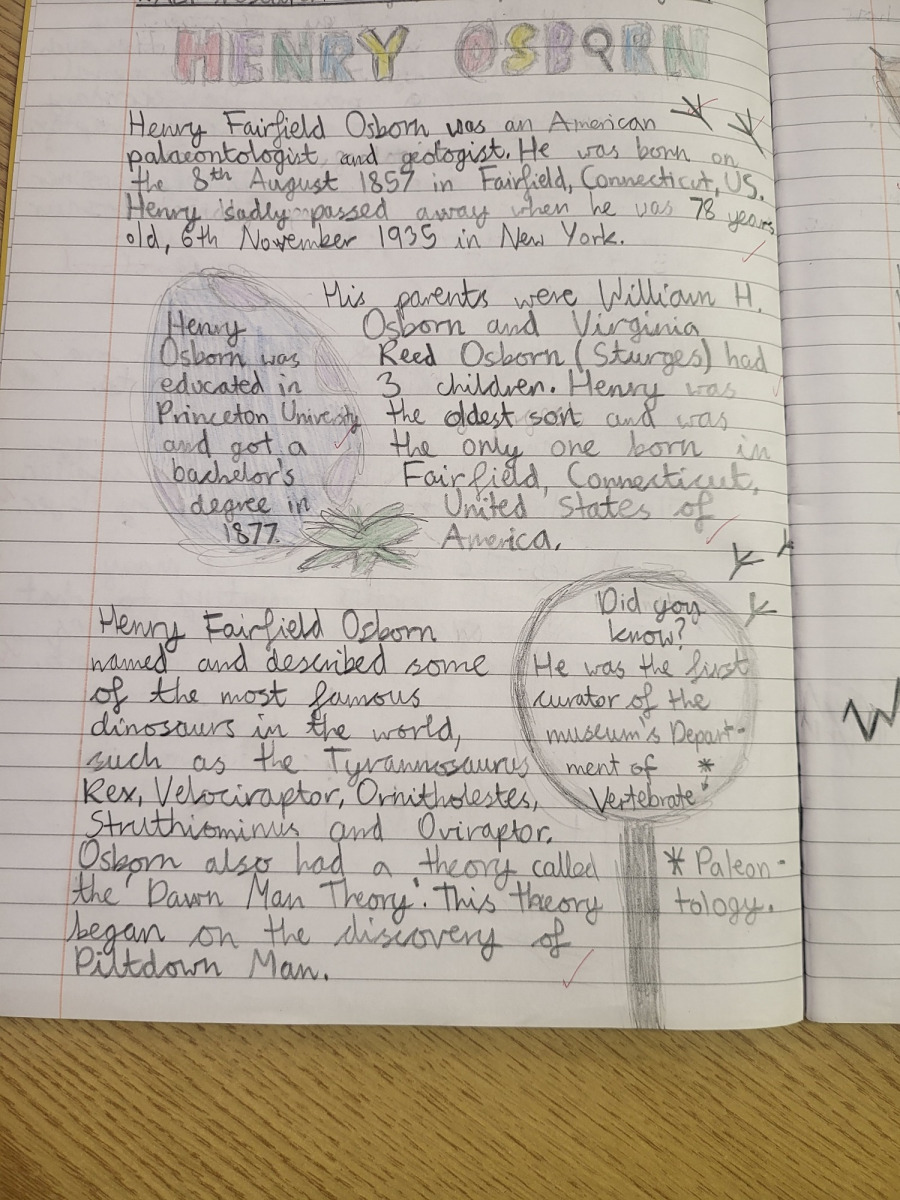 HENRY OSBORN
Henry Fairfield Osborn was an American
palaeontologist and geologist. He was born on
the 8th August 1857 in Fairfield, Connecticut, US.
Henry sadly passed away when he was 78 years
old, 6th November 1935 in New York.
His parents were William H.
Osborn and Virginia
Reed Osborn (Sturges) had
3 children. Henry was
the oldest son and was
the only one born in
Fairfield, Connecticut,
United States of
America.
Henry
Osborn was
educated in
Princeton University
and got a
bachelor's
degree in
1877.
Henry Fairfield Osborn
named and described some
of the most famous
dinosaurs in the world,
such as the Tyrannosaurus
Rex, Velociraptor, Ornitholestes,
Struthiominus and Oviraptor.
Osborn also had a theory called
the 'Dawn Man Theory'. This theory
began on the discovery of
Piltdown Man.
Did you
know?
He was the first
curator of the
museum's Depart-
ment of *
Vertebrate
* Paleon-
tology.